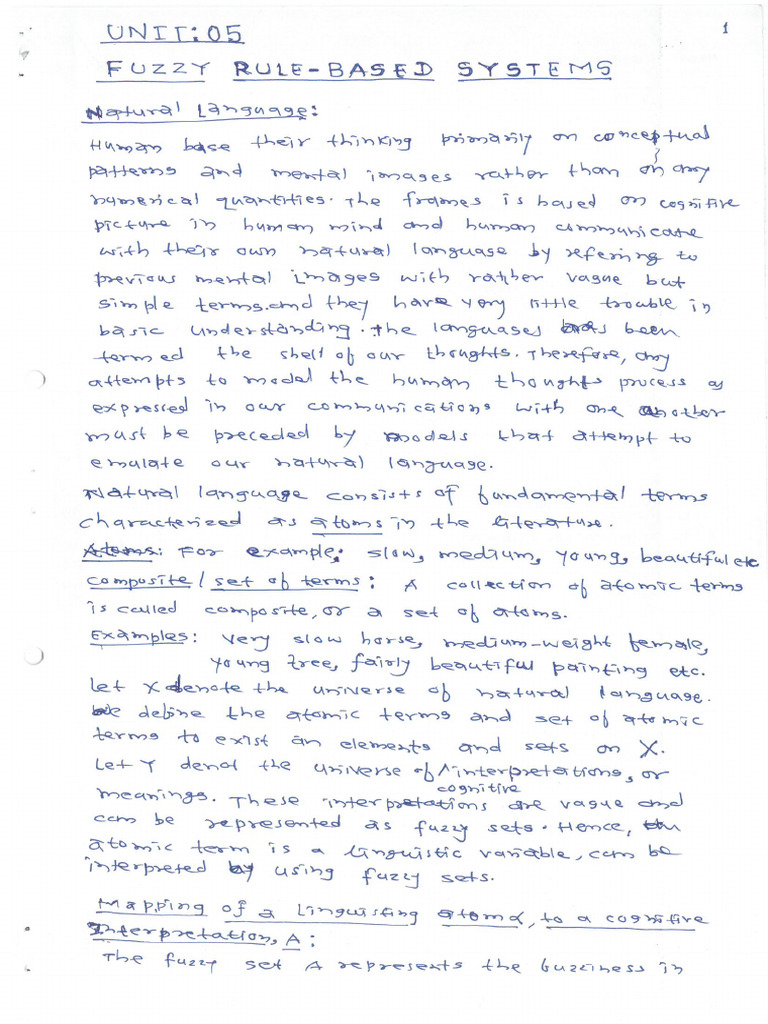 1
UNIT:05
FUZZY RULE-BASED SYSTEMS
Natural Language:
Human base their thinking primarily on conceptual
patterns and mental images rather than on any
numerical quantities. The frames is based on cognitive
picture in human mind and human communicate
with their own natural language by referring to
previous mental images with rather vague but
simple terms.and they have very little trouble in
basic understanding. The languages has been
termed the shell of our thoughts. Therefore, any
attempts to model the human thought process as
expressed in our communications with one another
must be preceded by models that attempt to
emulate our natural language.
Natural language consists of fundamental terms
characterized as atoms in the literature.
Atoms: For example: slow, medium, young, beautiful etc
composite/ set of terms: A collection of atomic terms
is called composite, or a set of atoms.
Examples: very slow horse, medium-weight female,
young tree, fairly beautiful painting etc.
Let X denote the universe of natural language.
We define the atomic terms and set of atomic
terms to exist an elements and sets on X.
Let Y denot the universe of cognitive interpretations, or
meanings. These interpretations are vague and
can be represented as fuzzy sets. Hence, an
atomic term is a linguistic variable, can be
interpreted by using fuzzy sets.
Mapping of a Linguisting atom α, to a cognitive
Interpretation, A:
The fuzzy set A represents the fuzziness in